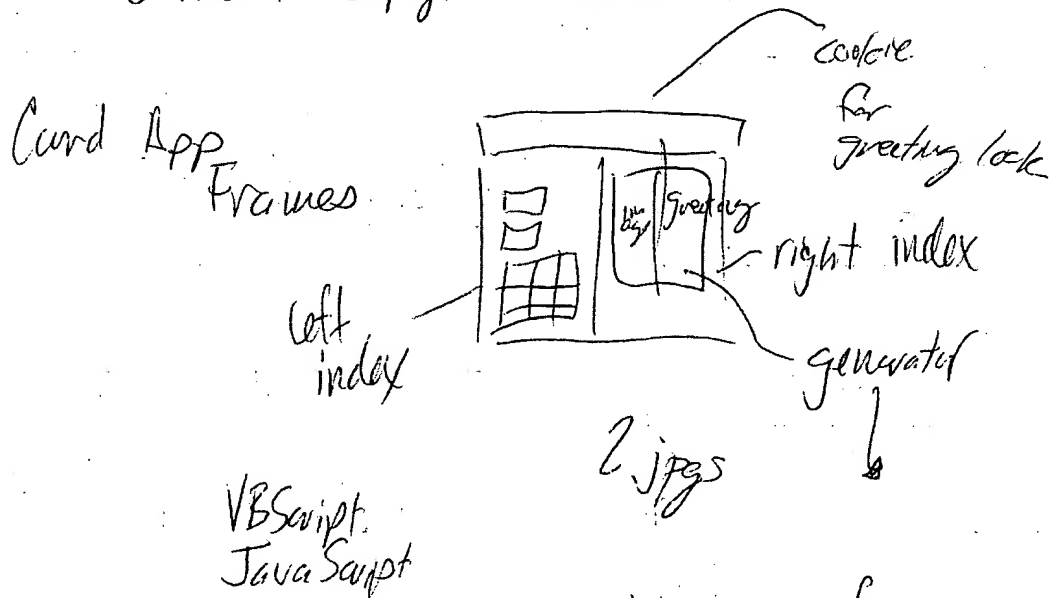 cookie
for
greeting lock
Card App
Frames
greeting
right index
left
index
generator
2 jpgs
VBScript
JavaScript